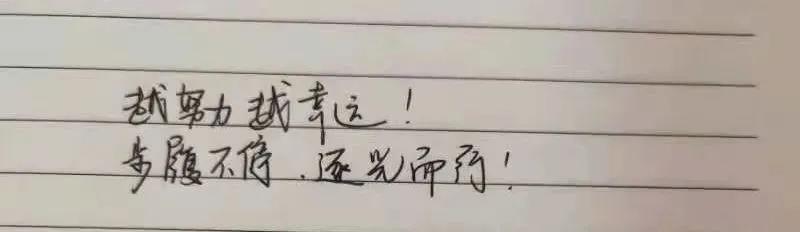 越努力越幸运!
步履不停,逐光而行!